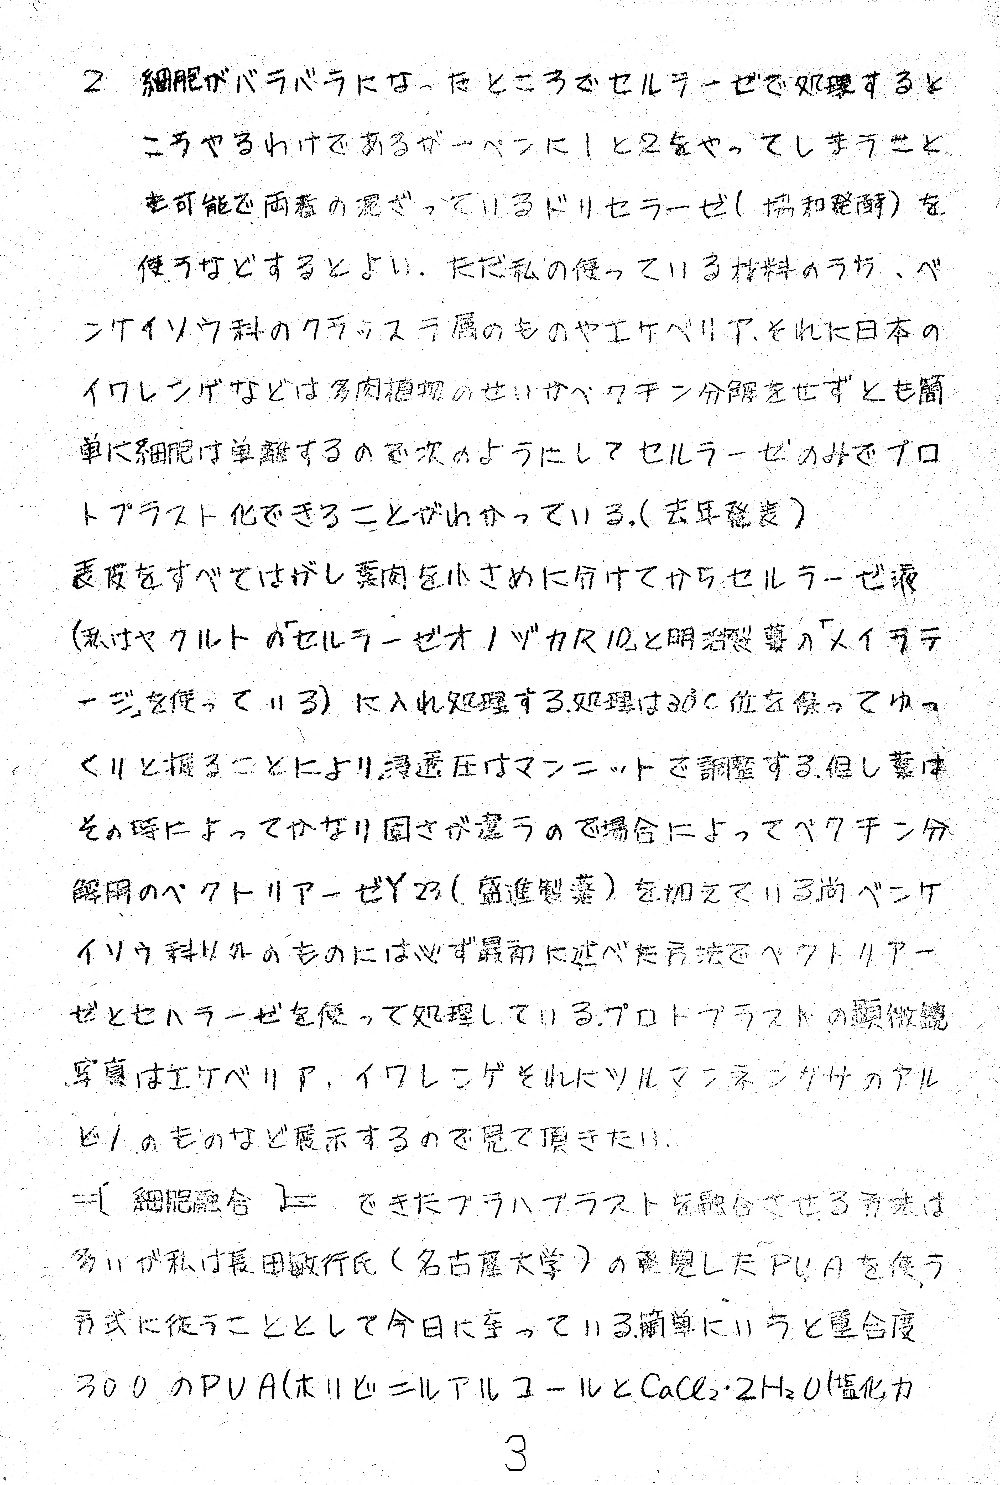 2 細胞がバラバラになったところでセルラーゼで処理すると
こうやるわけであるが一ぺんに1と2をやってしまうこと
も可能で両者の混ざっているドリセラーゼ(協和発酵)を
使うなどするとよい.ただ私の使っている材料のうち、ベ
ンケイソウ科のクラッスラ属のものやエケベリア、それに日本の
イワレンゲなどは多肉植物のせいかペクチン分解をせずとも簡
単に細胞は単離するので次のようにしてセルラーゼのみでプロ
トプラスト化できることがわかっている.(去年発表)
表皮をすべてはがし葉肉を小さめに分けてからセルラーゼ液
(私はヤクルトの「セルラーゼオノヅカR10」と明治製薬の「メイセラ
ーゼ」を使っている)に入れ処理する.処理は30℃位を保ってゆっ
くりと振ることにより,浸透圧はマンニットで調整する.但し葉は
その時によってかなり固さが違うので場合によってペクチン分
解用のペクトリアーゼY23(盛進製薬)を加えている.尚ベンケ
イソウ科以外のものには必ず最初に述べた方法でペクトリアー
ゼとセルラーゼを使って処理している.プロトプラストの顕微鏡
写真はエケベリア、イワレンゲそれにツルマンネングサのアル
ビノのものなど展示するので見て頂きたい.
=[ 細胞融合 ]= できたプラハプラストを融合させる方法は
多いが私は長田敏行氏(名古屋大学)の発見したPVAを使う
方式に従うこととして今日に至っている.簡単にいうと重合度
300のPVA(ポリビニルアルコールとCaCl₂・2H₂O(塩化カ
3